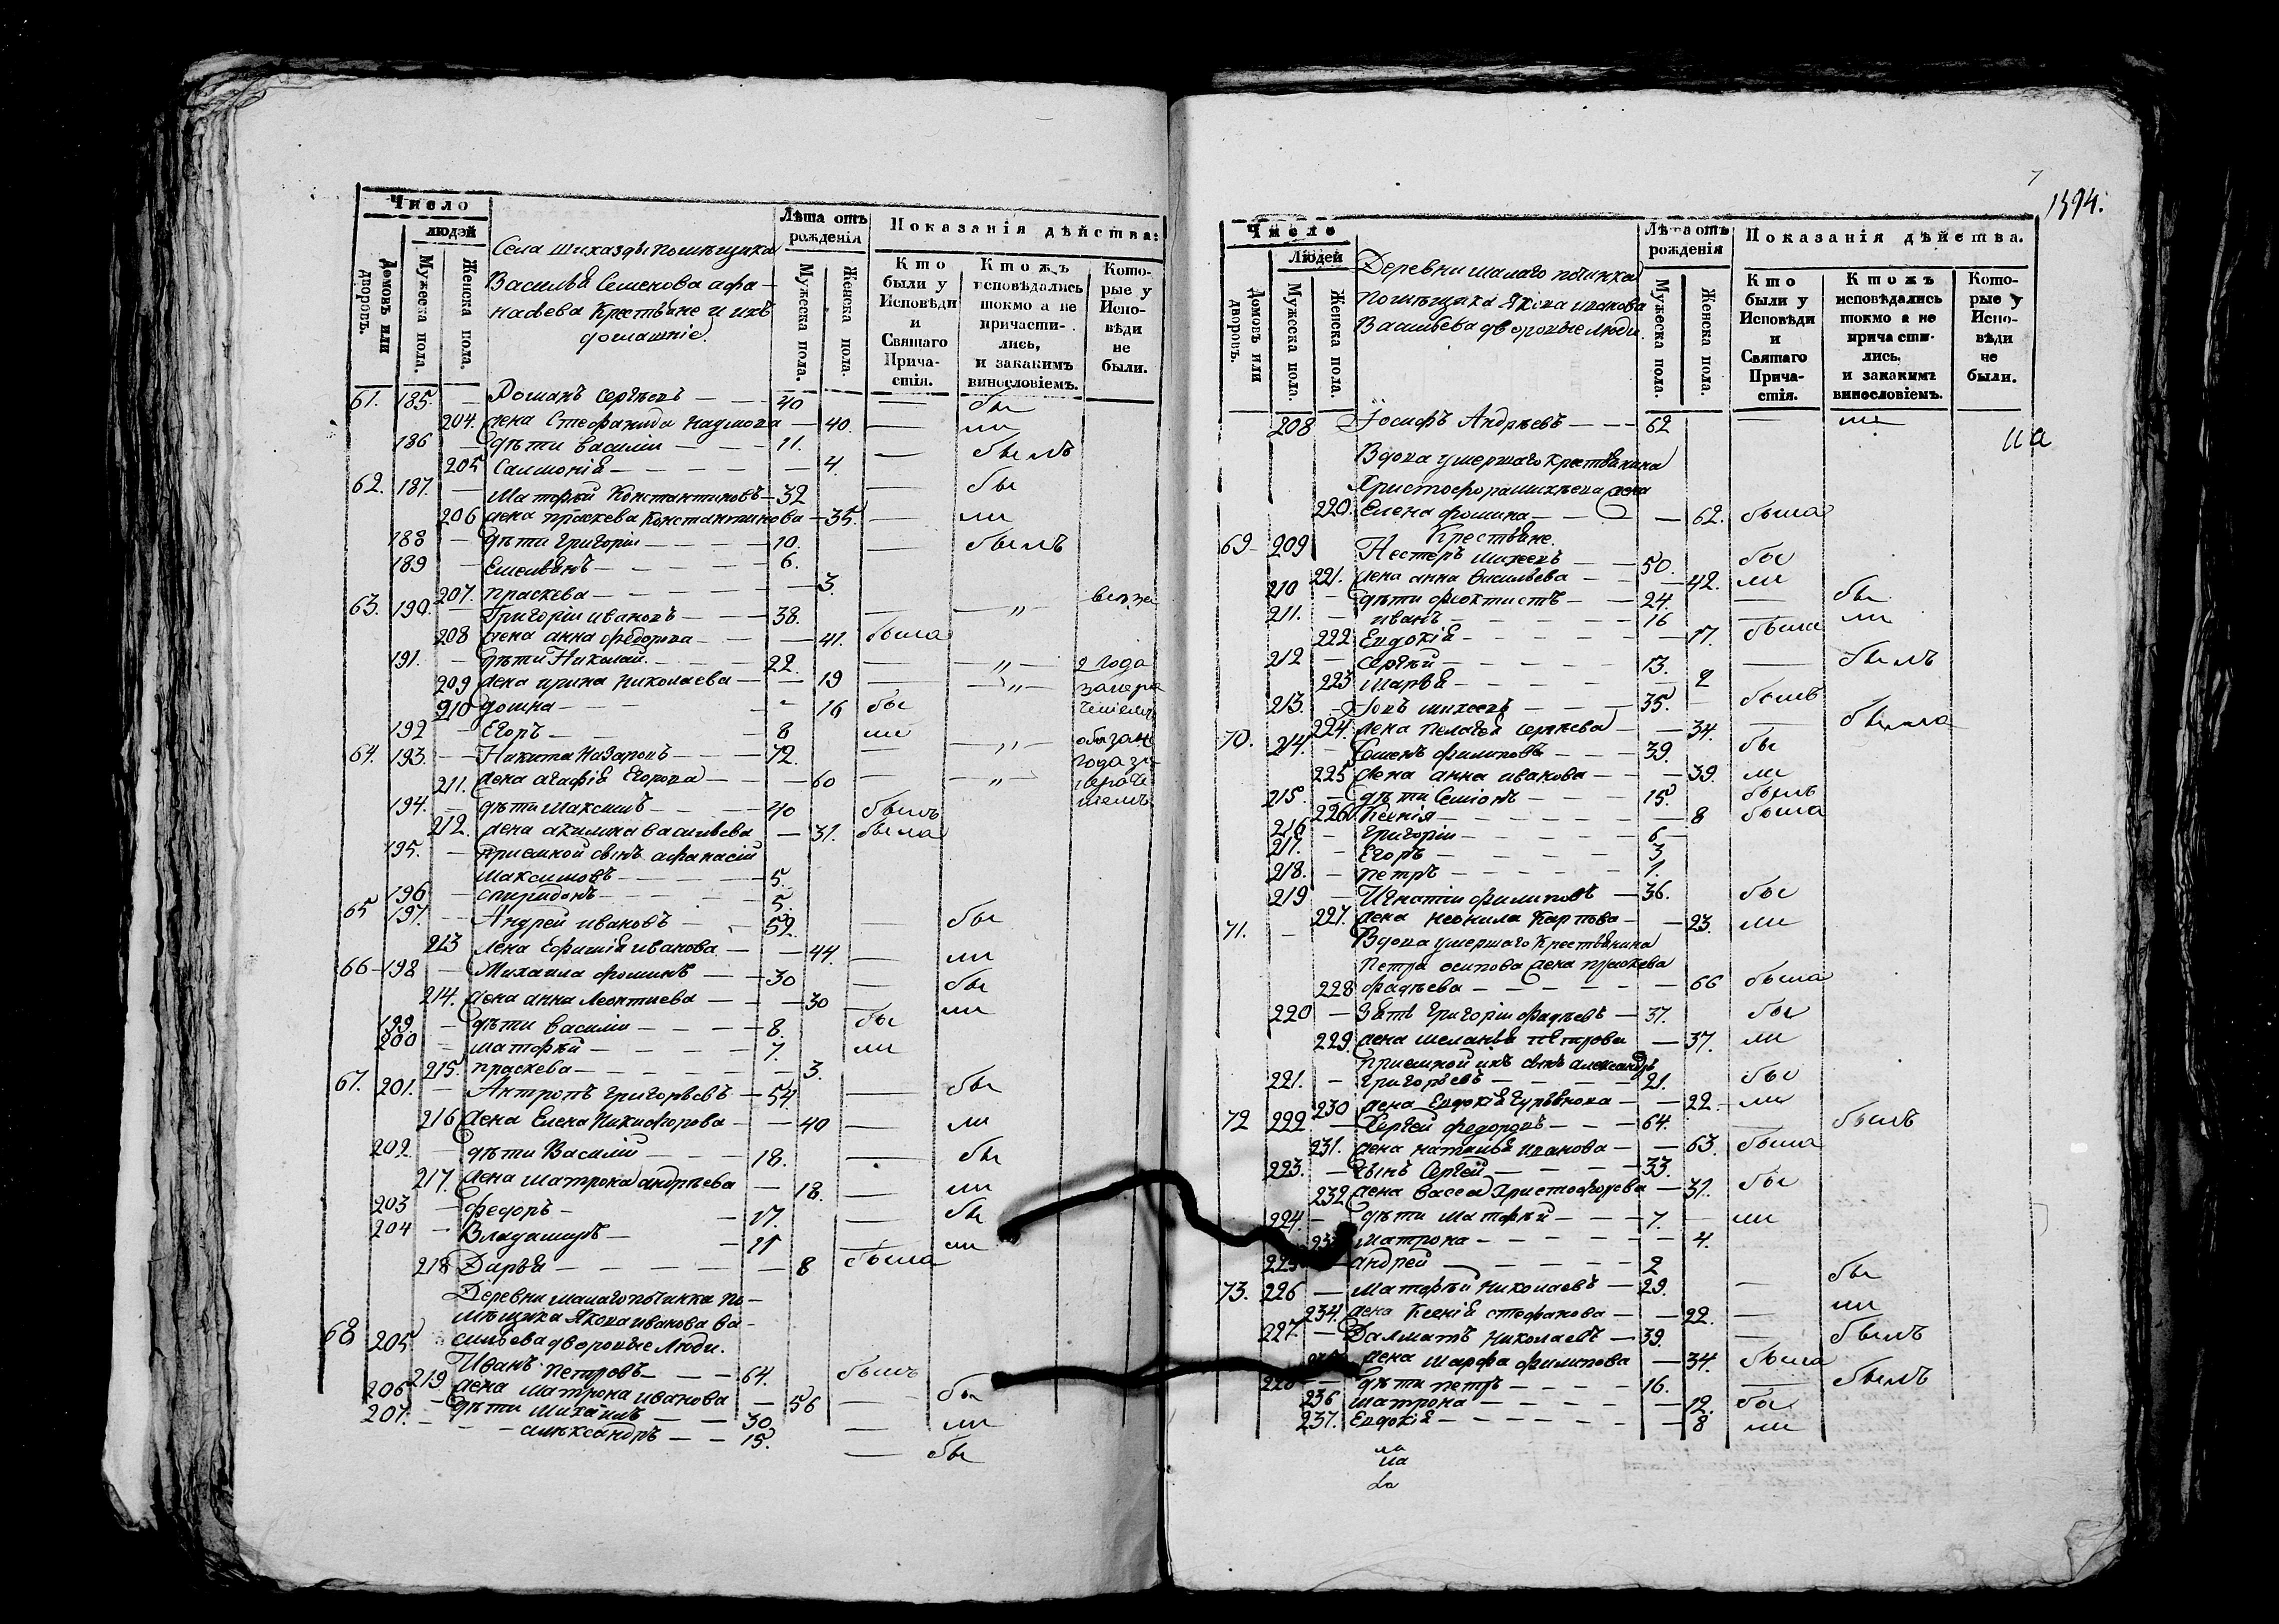 Число
людей
Домовъ или дворовъ.
Мужеска пола.
Женска пола.
Села Шихазды помѣщика
Василья Семенова Афа-
насьева Крестьяне и ихъ
домашніе.
Лѣта отъ рожденія
Мужеска пола.
Женска пола.
Показанія дѣйства:
Кто были у Исповѣди и Святаго Причастія.
Ктожъ исповѣдались токмо а не причастились, и закакимъ винословіемъ.
Которые у Исповѣди не были.
61. 185. — Романъ Сергѣевъ — — 40 — бы
204. жена Стефанида Наумова — 40. — ли
186 — дѣти Василіи — — 11. — былъ
205 Саломонія — — — 4.
62. 187. — Матфѣй Константиновъ — 32 — бы
206 жена Праскева Константинова — 35. — ли
188 — дѣти Григоріи — — 10. — былъ
189 — Емельянъ — — 6.
207. Праскева — — 3.
63. 190. — Григоріи Ивановъ — — 38. — „
208 жена Анна Федорова — — 41. была
191. — дѣти Николай — — 22. — „ — 2 года
209 жена Ирина Николаева — — 19 — „
210 Домна — — 16 бы
192 — Егоръ — 8 ли
64. 193. — Никита Назаровъ — — 72. — „
211. жена Агафія Егорова — — 60 — „
194. — дѣти Максимъ — — 40 былъ
212. жена Акилина Васильева — 31. была
195. — приемной сынъ Афанасій
Максимовъ — — 5.
196 — Спиридонъ — — 5.
65 197. — Андрей Ивановъ — — 52. бы
213 жена Ефимія Иванова — — 44. — ли
66 — 198 — Михаила Фоминъ — — 30 — бы
214. жена Анна Леонтиева — — 30 — ли
199. — дѣти Василіи — — 8. бы
200 — Матфѣй — — 7. ли
215. Праскева — — 3.
67. 201. — Антропъ Григорьевъ — 54. — бы
216 жена Елена Никифорова — — 40 — ли
202. — дѣти Василій — — 18. — бы
217. жена Матрона Андреева — 18. — ли
203 — Федоръ — — 17. — бы
204 — Владимиръ — — ли
218 Дарья — — 8 была
Деревни малаго починка по-
мѣщика Якова Иванова Ва-
сильева дворовые люди.
68 205 Иванъ Петровъ — — 64. былъ
219 жена Матрона Иванова — 56 — бы
206 — дѣти Михаилъ — — 30. — ли
207. — Александръ — — 15. — бы
1394.
Число
Людей
Домовъ или дворовъ.
Мужеска пола.
Женска пола.
Деревни малаго починка
помѣщика Якова Иванова
Васильева дворовые люди.
Лѣта отъ рожденія
Мужеска пола.
Женска пола.
Показанія дѣйства.
Кто были у Исповѣди и Святаго Причастія.
Ктожъ исповѣдались токмо а не причастились. и закакимъ винословіемъ.
Которые у Исповѣди не были.
208 Іосифъ Андрѣевъ — — 62 — ли
Вдова умершаго крестьянина
Христофора Михѣева жена
220. Елена Фомина — — 62. была
Крестьяне.
69 — 209 Нестеръ Михеевъ — — 50. бы
221. жена Анна Васильева — — 42. ли
210 — дѣти Феоктистъ — — 24. — бы
211. — Иванъ — — 16 — ли
222 Евдокія — — 17. была
212 — Сергѣй — — 13. — былъ
223 Марья — — 2
213. — Іовъ Михеевъ — — 35. — былъ
224. жена Пелагея Сергѣева — — 34. — была
70. 214. — Семенъ Филиповъ — — 39. бы
225 жена Анна Иванова — — 39. ли
215. — дѣти Семіонъ — — 15. былъ
226 Ксенія — — 8 была
216 — Григоріи — — 6
217. — Егоръ — — 3
218. — Петръ — — 1.
219 — Игнатіи Филиповъ — 36. бы
227. жена Неонила Карпова — 23. ли
71. — Вдова умершаго крестьянина
Петра Осипова жена Праскева
228 Фадѣева — — 66 была
220 — Зять Григоріи Фадѣевъ — 37. бы
229 жена Меланья Петрова — 37. ли
приемной ихъ сынъ Александръ
221. — Григорьевъ — — 21. бы
230 жена Евдокія Гурьянова — — 22 — ли
72 222. — Сергей Федоровъ — — 64. — былъ
231. жена Наталья Иванова — — 63. была
223. — сынъ Сергей — — 33. бы
232 жена Васса Христофорова — 31.
224. — дѣти Матфѣй — — 7. — ли
Матрона — — 4.
Андрей — — 2
73. 226 — Матфѣй Николаевъ — 29. — бы
234. жена Ксенія Стефанова — — 22. — ли
227. — Далматъ Николаевъ — 39. — былъ
жена Марфа Филипова — 34. была
228 — дѣти Петръ — — 16. — былъ
236 Матрона — — 12. бы
237. Евдокія — — 8 ли